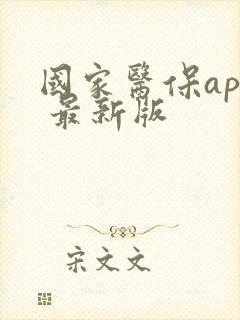 國家醫保ap
最新版
宋文文